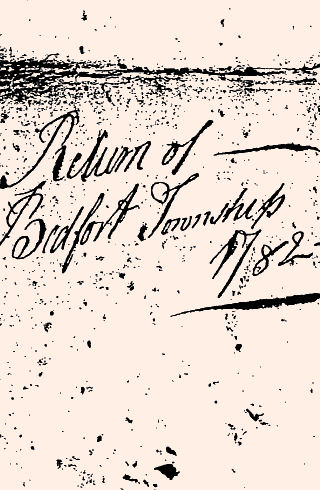 Return of
Bedfort Township
1782